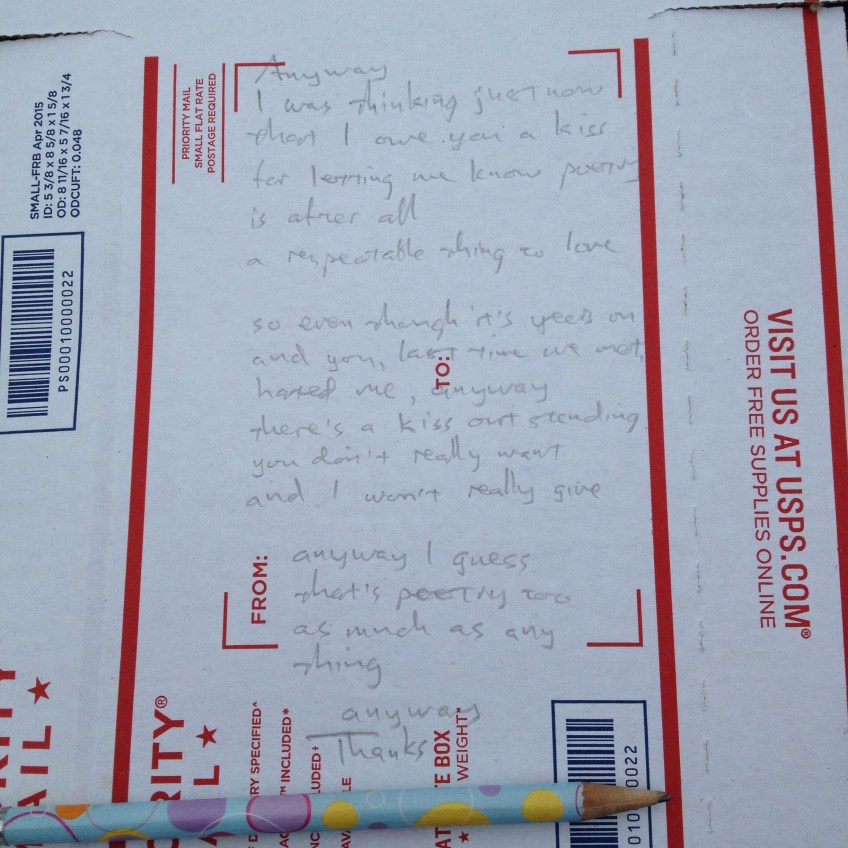 Anyway
I was thinking just now
that I owe you a kiss
for letting me know poetry
is after all
a respectable thing to love
so even though it's years on
and you, last time we met,
hated me, anyway
there's a kiss outstanding
you don't really want
and I won't really give
anyway I guess
that's poetry too
as much as any
thing
anyway
Thanks
TO:
FROM:
PRIORITY MAIL
SMALL FLAT RATE
POSTAGE REQUIRED
SMALL-FRB Apr 2015
ID: 5 3/8 x 8 5/8 x 1 5/8
OD: 8 11/16 x 5 7/16 x 1 3/4
ODCUFT: 0.048
PS00010000022
VISIT US AT USPS.COM®
ORDER FREE SUPPLIES ONLINE
RITY®
L ★
AIL ★
RY SPECIFIED^
INCLUDED*
LUDED+
E BOX
WEIGHT*
0022